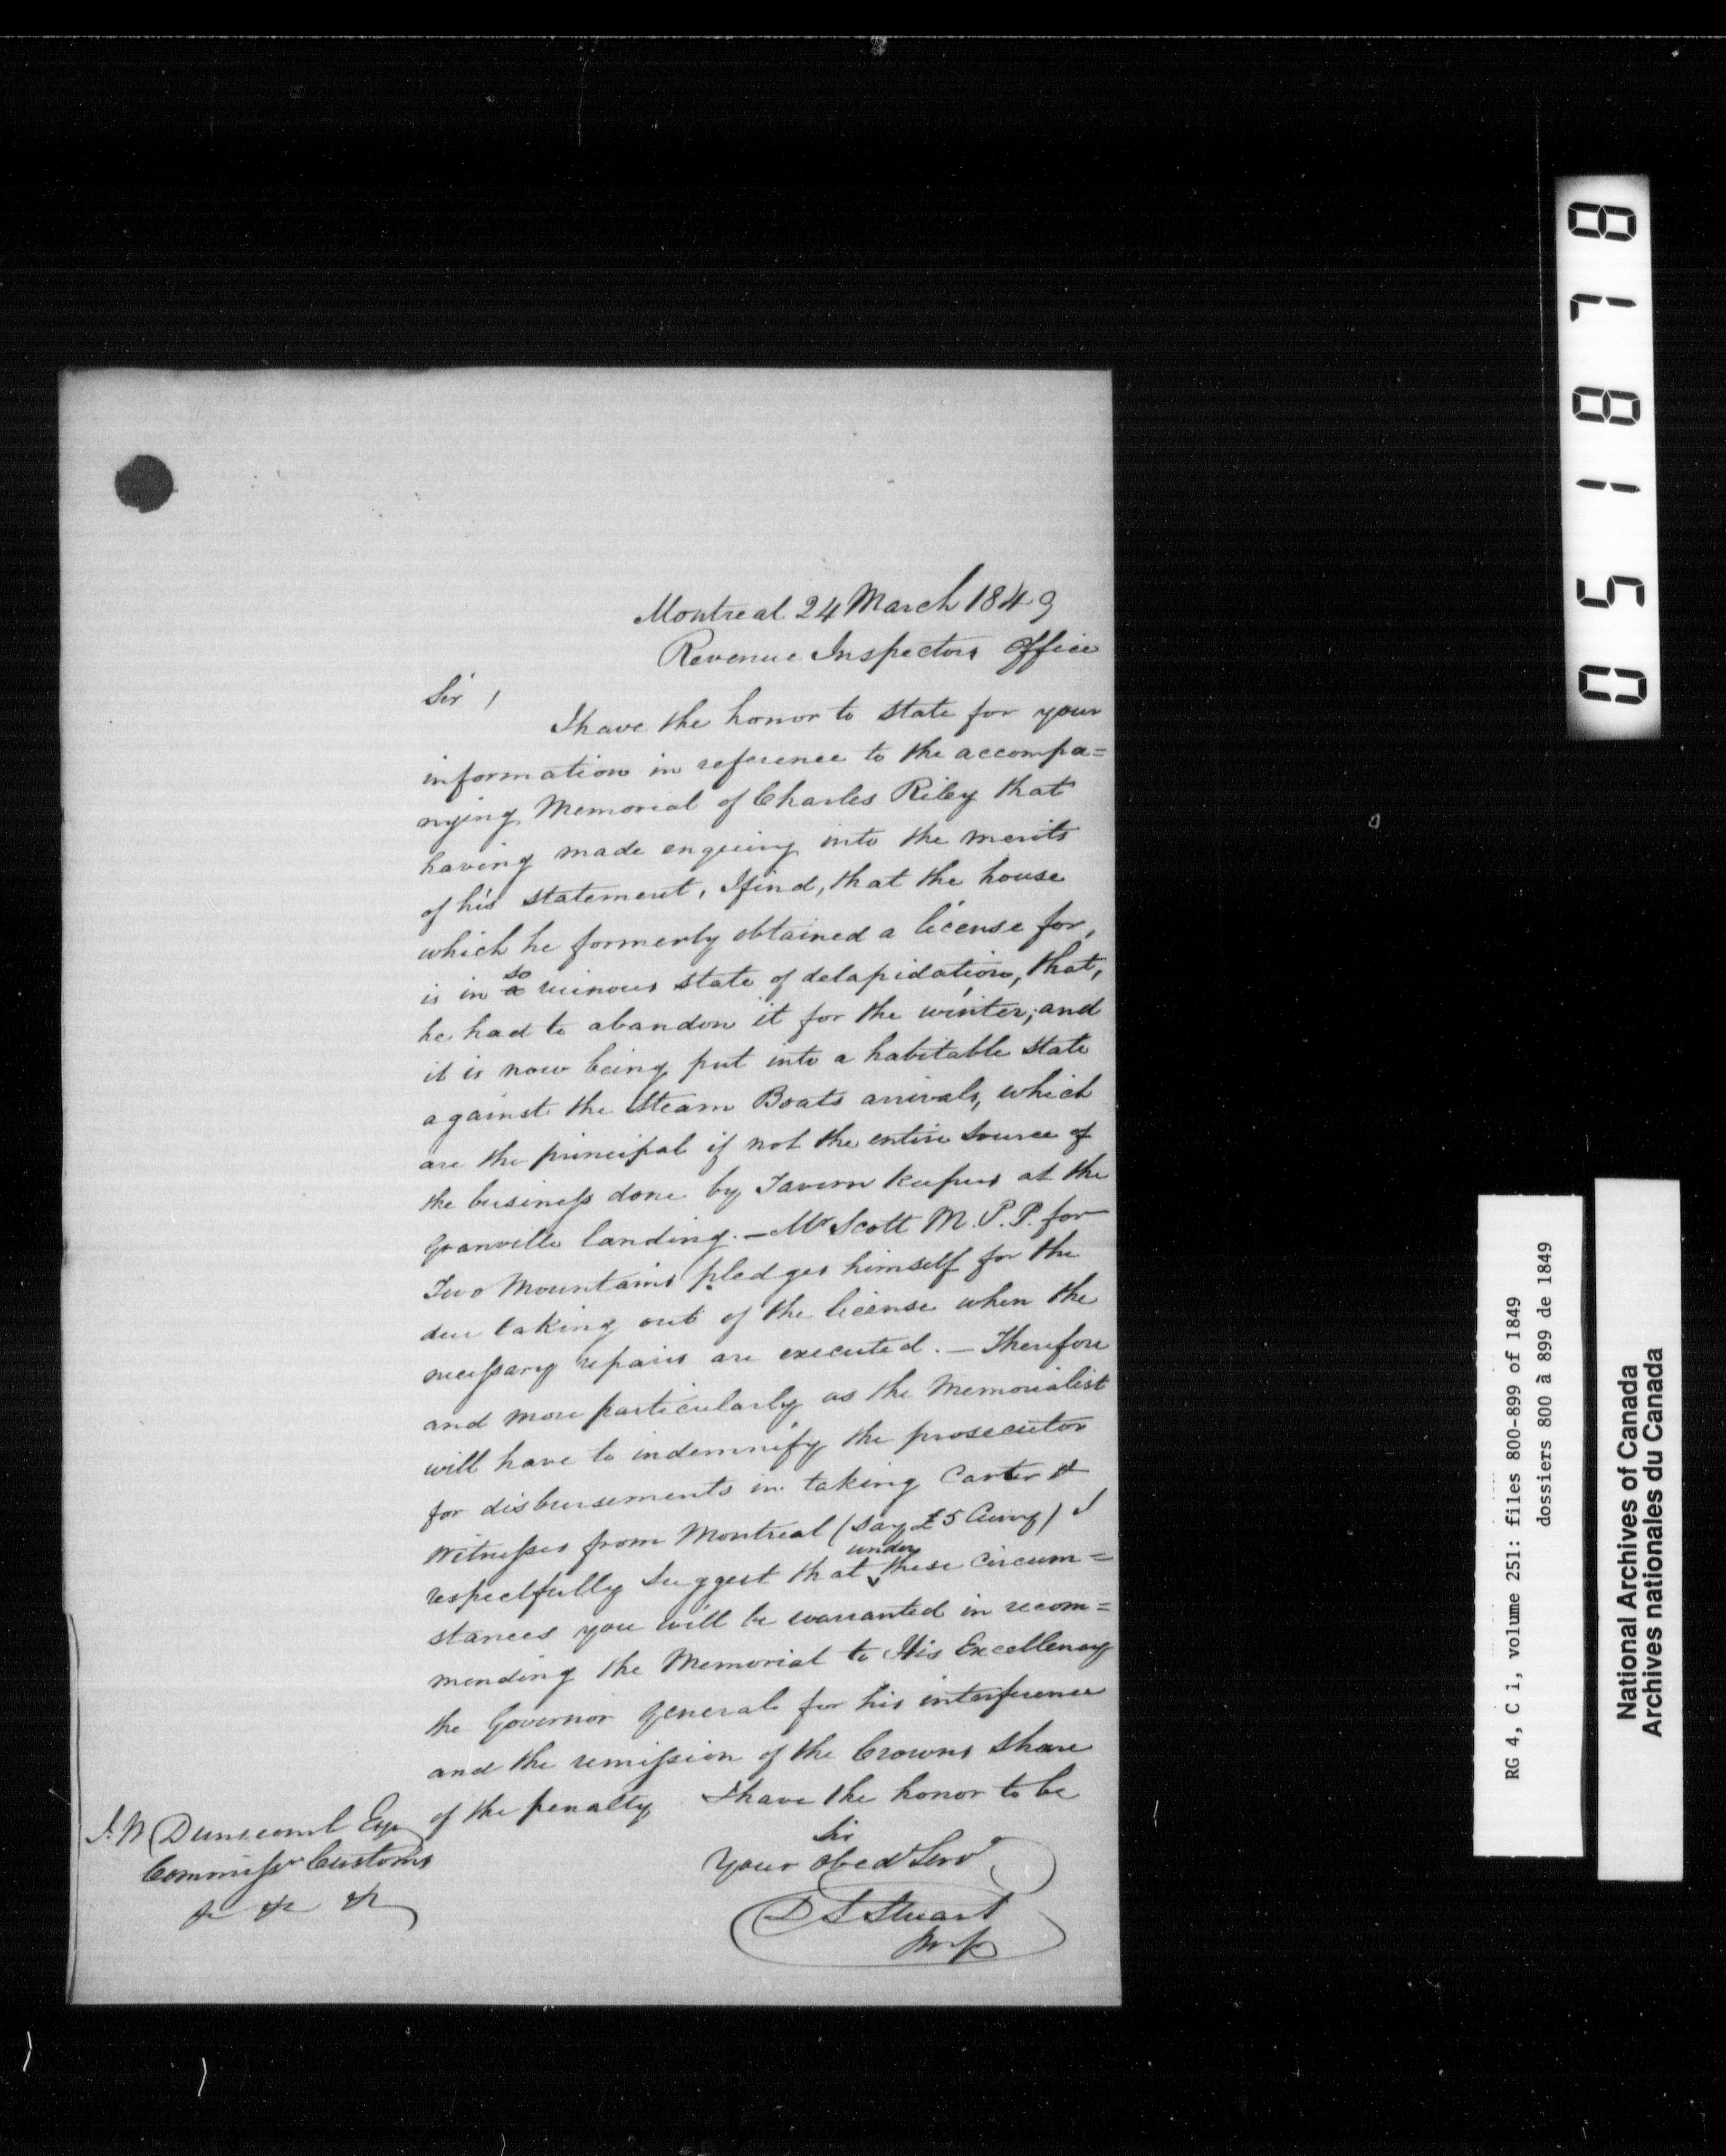 Montreal 24 March 1849
Revenue Inspectors Office
Sir,
I have the honor to state for your
information in reference to the accompa=
nying Memorial of Charles Riley that
having made enquiry into the merits
of his statement, I find, that the house
which he formerly obtained a license for,
is in so ruinous state of delapidation, that,
he had to abandon it for the winter; and
it is now being put into a habitable state
against the Steam Boats arrivals, which
are the principal if not the entire source of
the business done by Tavern keepers at the
Granville landing. — Mr Scott M.P.P. for
Two Mountains pledges himself for the
due taking out of the license when the
necessary repairs are executed. — Therefore
and more particularly as the Memorialist
will have to indemnify the prosecutor
for disbursements in taking Carter &
Witnesses from Montreal (say £5 Curry) I
respectfully suggest that under these circum=
stances you will be warranted in recom=
mending the Memorial to His Excellency
the Governor General for his interference
and the remission of the Crowns share
of the penalty. I have the honor to be
Sir
Your Obedt Servt
D S Stuart
J. W Dunscomb Esqr
Commissr Customs
&c &c &c
051878
RG 4, C 1, volume 251: files 800-899 of 1849
dossiers 800 à 899 de 1849
National Archives of Canada
Archives nationales du Canada